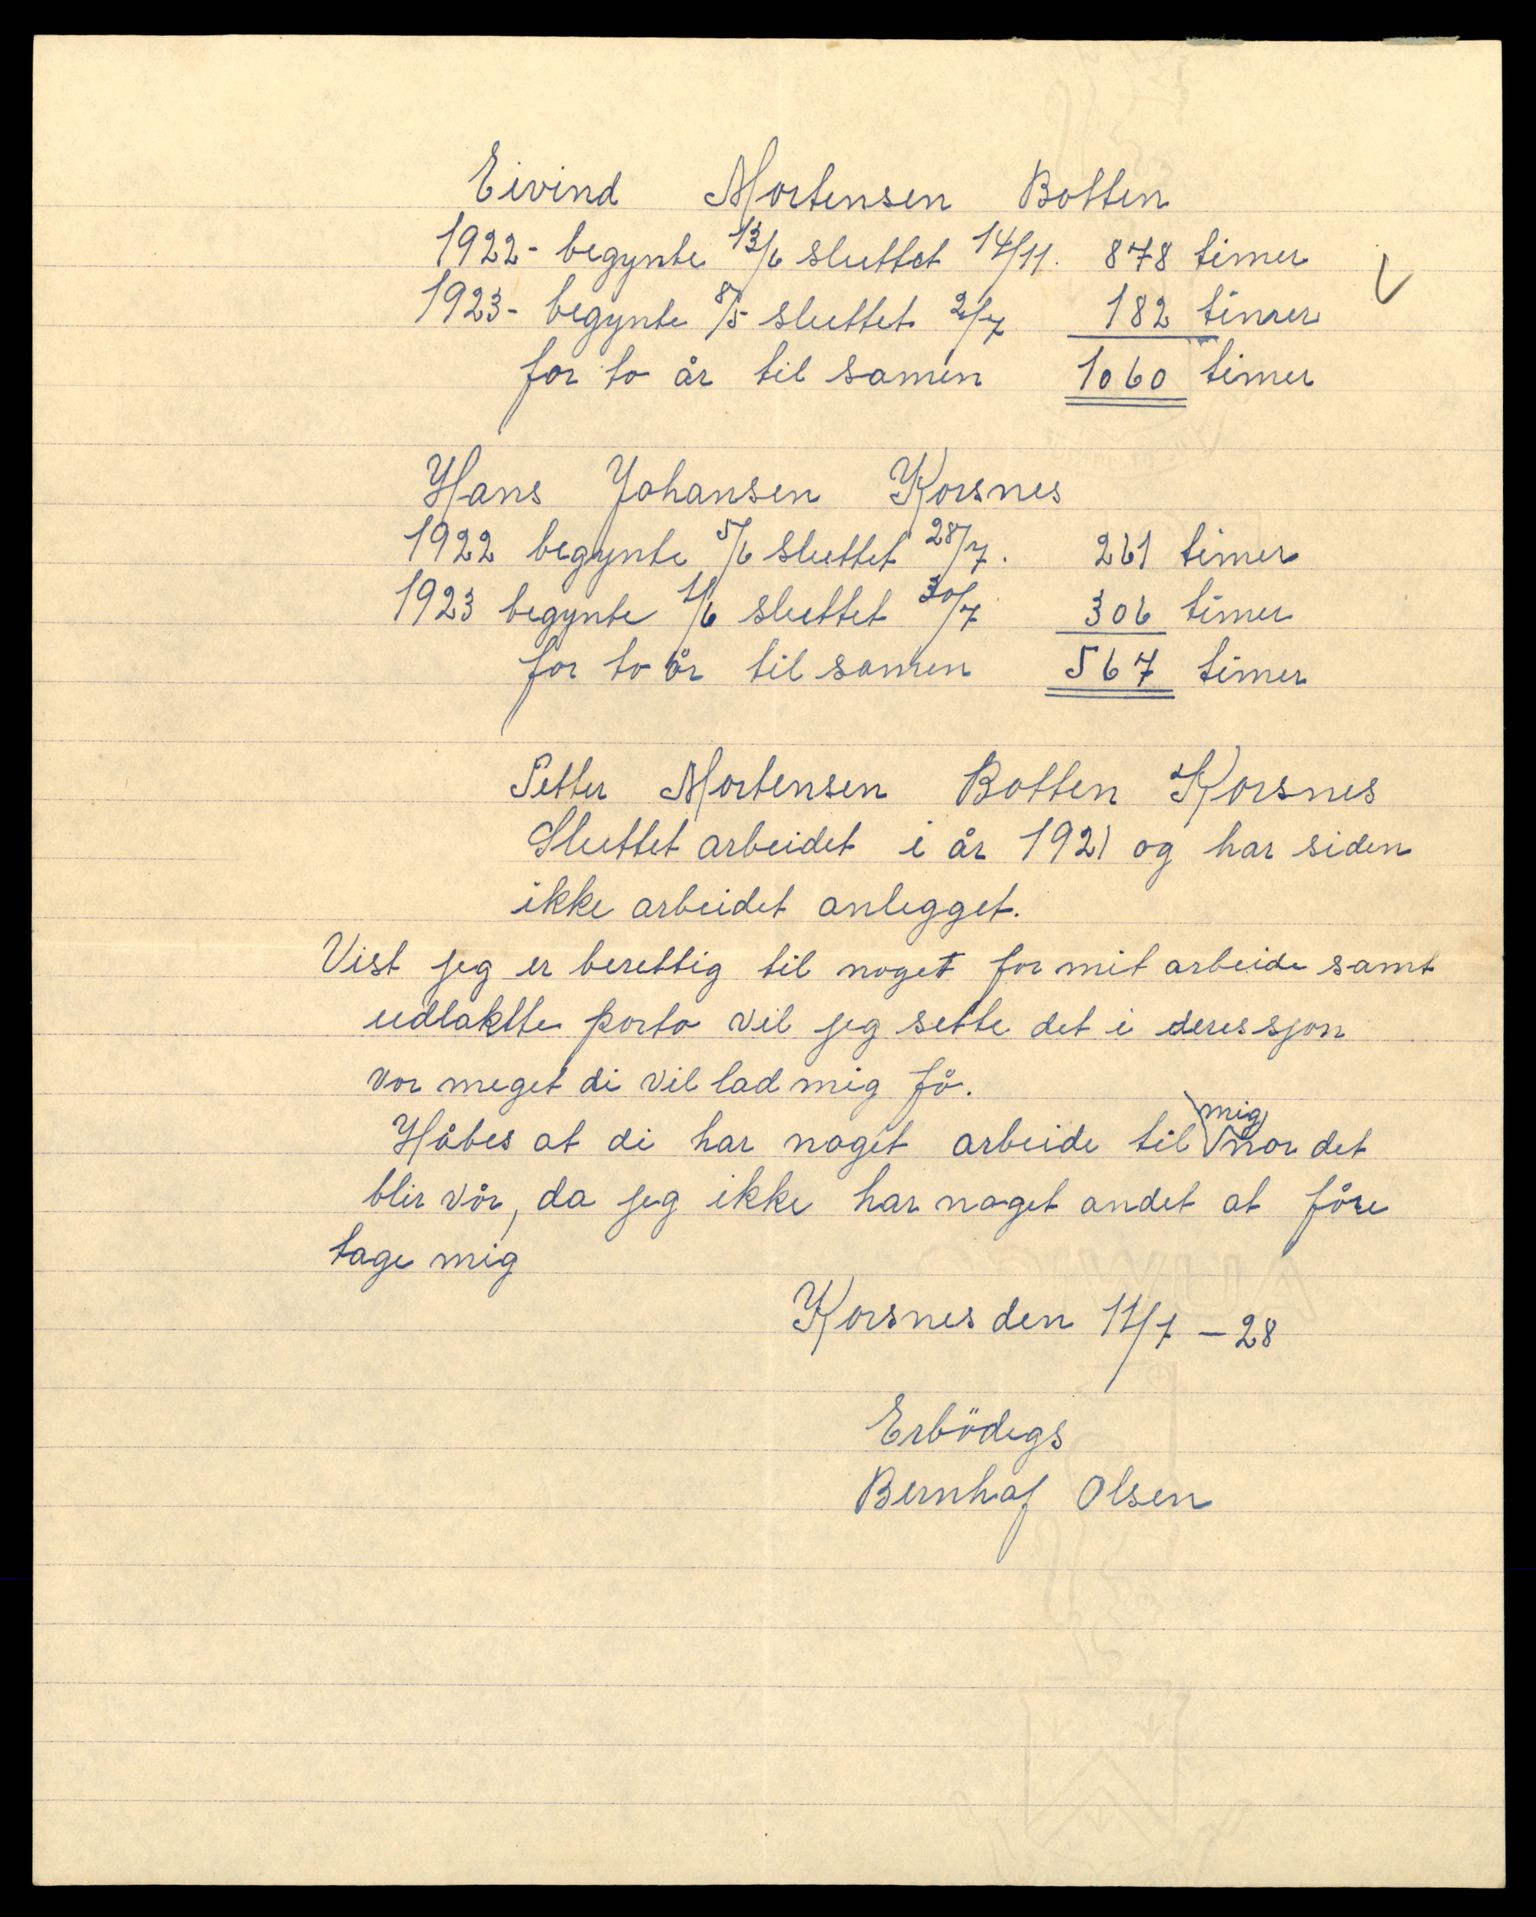 Eivind Mortensen Botten
1922- begynte 13/6 sluttet 14/11. 878 timer
1923- begynte 8/5 sluttet 2/7 182 timer
for to år til samen 1060 timer
Hans Johansen Korsnes
1922 begynte 5/6 sluttet 28/7. 261 timer
1923 begynte 1/6 sluttet 30/7 306 timer
for to år til samen 567 timer
Petter Mortensen Botten Korsnes
Sluttet arbeidet i år 1921 og har siden
ikke arbeidet anlegget.
Vist jeg er berettig til noget for mit arbeide samt
udlaktte porto vil jeg sette det i deres sjøn
vor meget di vil lad mig få.
Håbes at di har noget arbeide til mig nor det
blir vår, da jeg ikke har noget andet at føre
tage mig
Korsnes den 11/1 – 28
Erbödigs
Bernhof Olsen